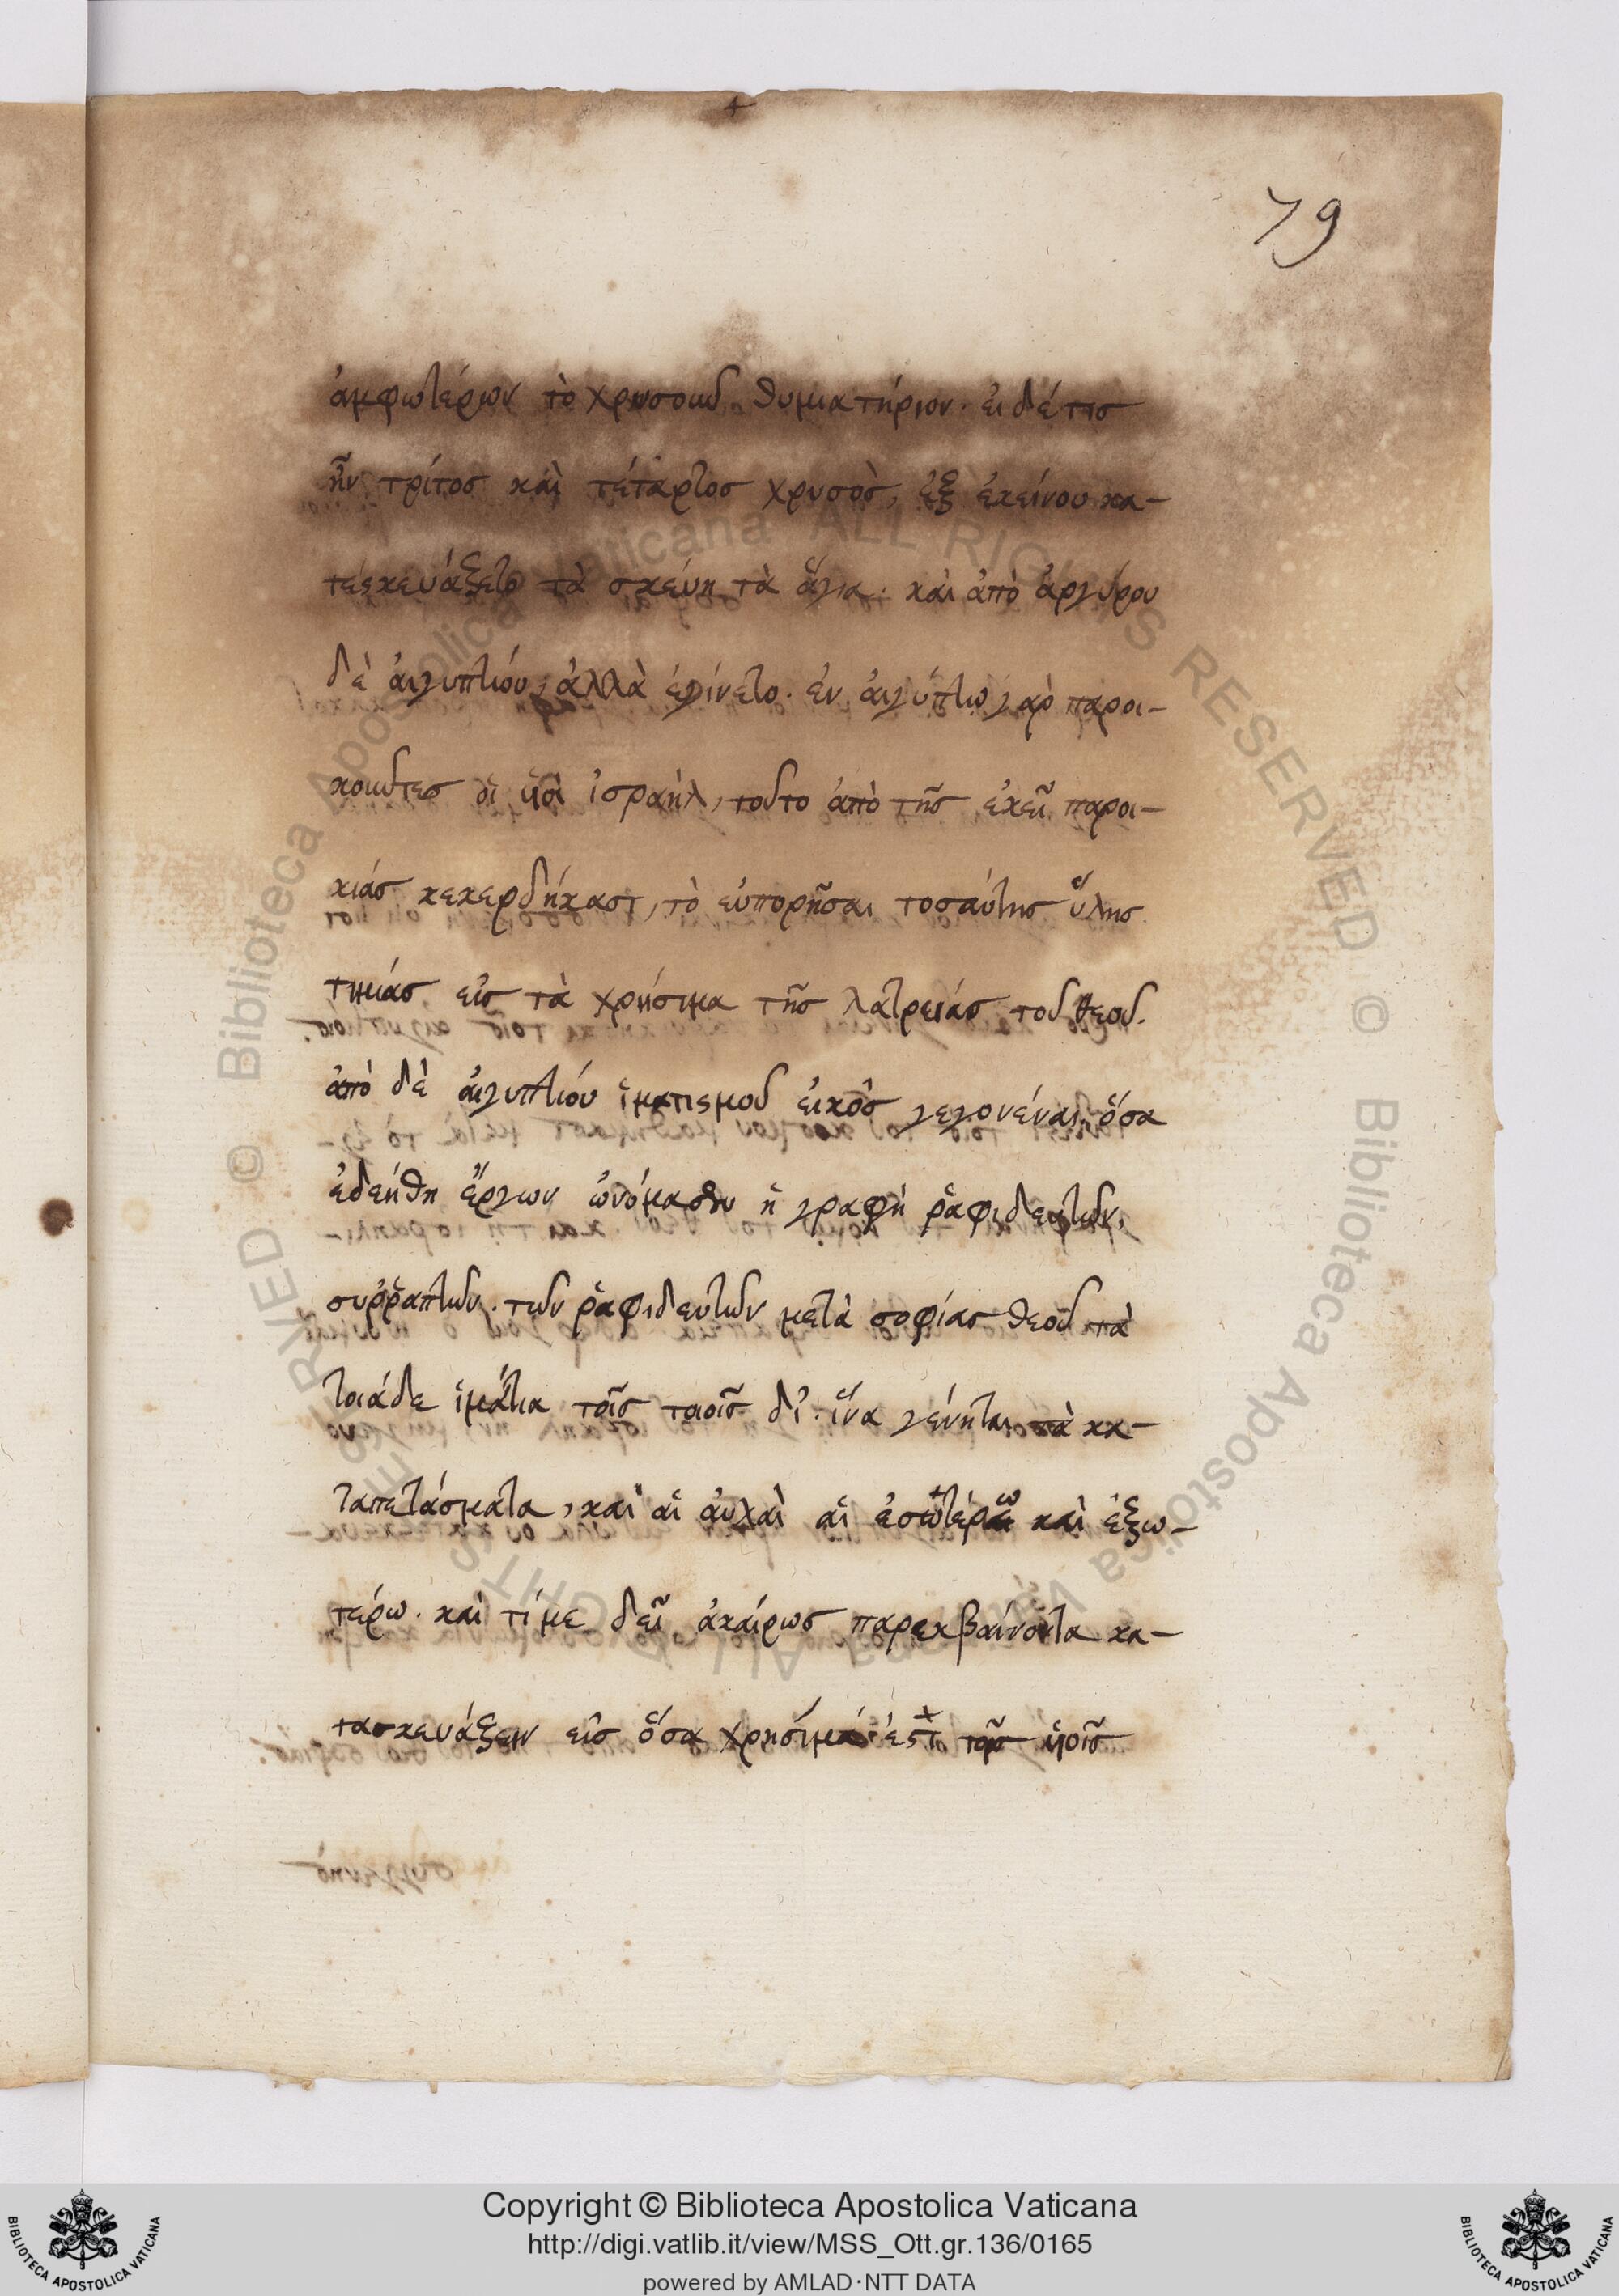 79
ἀμφωτέρων τὸ χρυσοῦν θυμιατήριον. εἰ δέ τις
ἦν τρίτος καὶ τέταρτος χρυσὸς, ἐξ ἐκείνου κα-
τεσκευάζετο τὰ σκεύη τὰ ἅγια. καὶ ἀπὸ ἀργύρου
δὲ αἰγυπτίου, ἀλλὰ ἐγίνετο. ἐν αἰγύπτω γὰρ παροι-
κοῦντες οἱ υἱοὶ ἰσραὴλ, τοῦτο ἀπὸ τῆς ἐκεῖ παροι-
κιάς κεκερδήκασι, τὸ εὐπορῆσαι τοσαύτης ὕλης
τιμιάς εἰς τὰ χρήσιμα τῆς λατρειάς τοῦ θεοῦ.
ἀπὸ δὲ αἰγυπτίου ἱματισμοῦ εἰκὸς γεγονέναι ὅσα
ἐδεήθη ἔργων ὠνόμασεν ἡ γραφὴ ῥαφιδευτῶν,
συῤῥαπτῶν. τῶν ῥαφιδευτῶν μετὰ σοφίας θεοῦ τὰ
τοιάδε ἱμάτια τοῖς τοιοῖς δι. ἵνα γένηται τὰ κα-
ταπετάσματα, καὶ αἱ αὐλαὶ αἱ ἐσωτέρω καὶ ἐξω-
τέρω. καὶ τί με δεῖ ἀκαίρως παρεκβαίνοντα κα-
τασκευάζειν εἰς ὅσα χρησίμά ἐστι τοῖς υἱοῖς
Copyright © Biblioteca Apostolica Vaticana
http://digi.vatlib.it/view/MSS_Ott.gr.136/0165
powered by AMLAD·NTT DATA
BIBLIOTECA APOSTOLICA VATICANA
BIBLIOTECA APOSTOLICA VATICANA